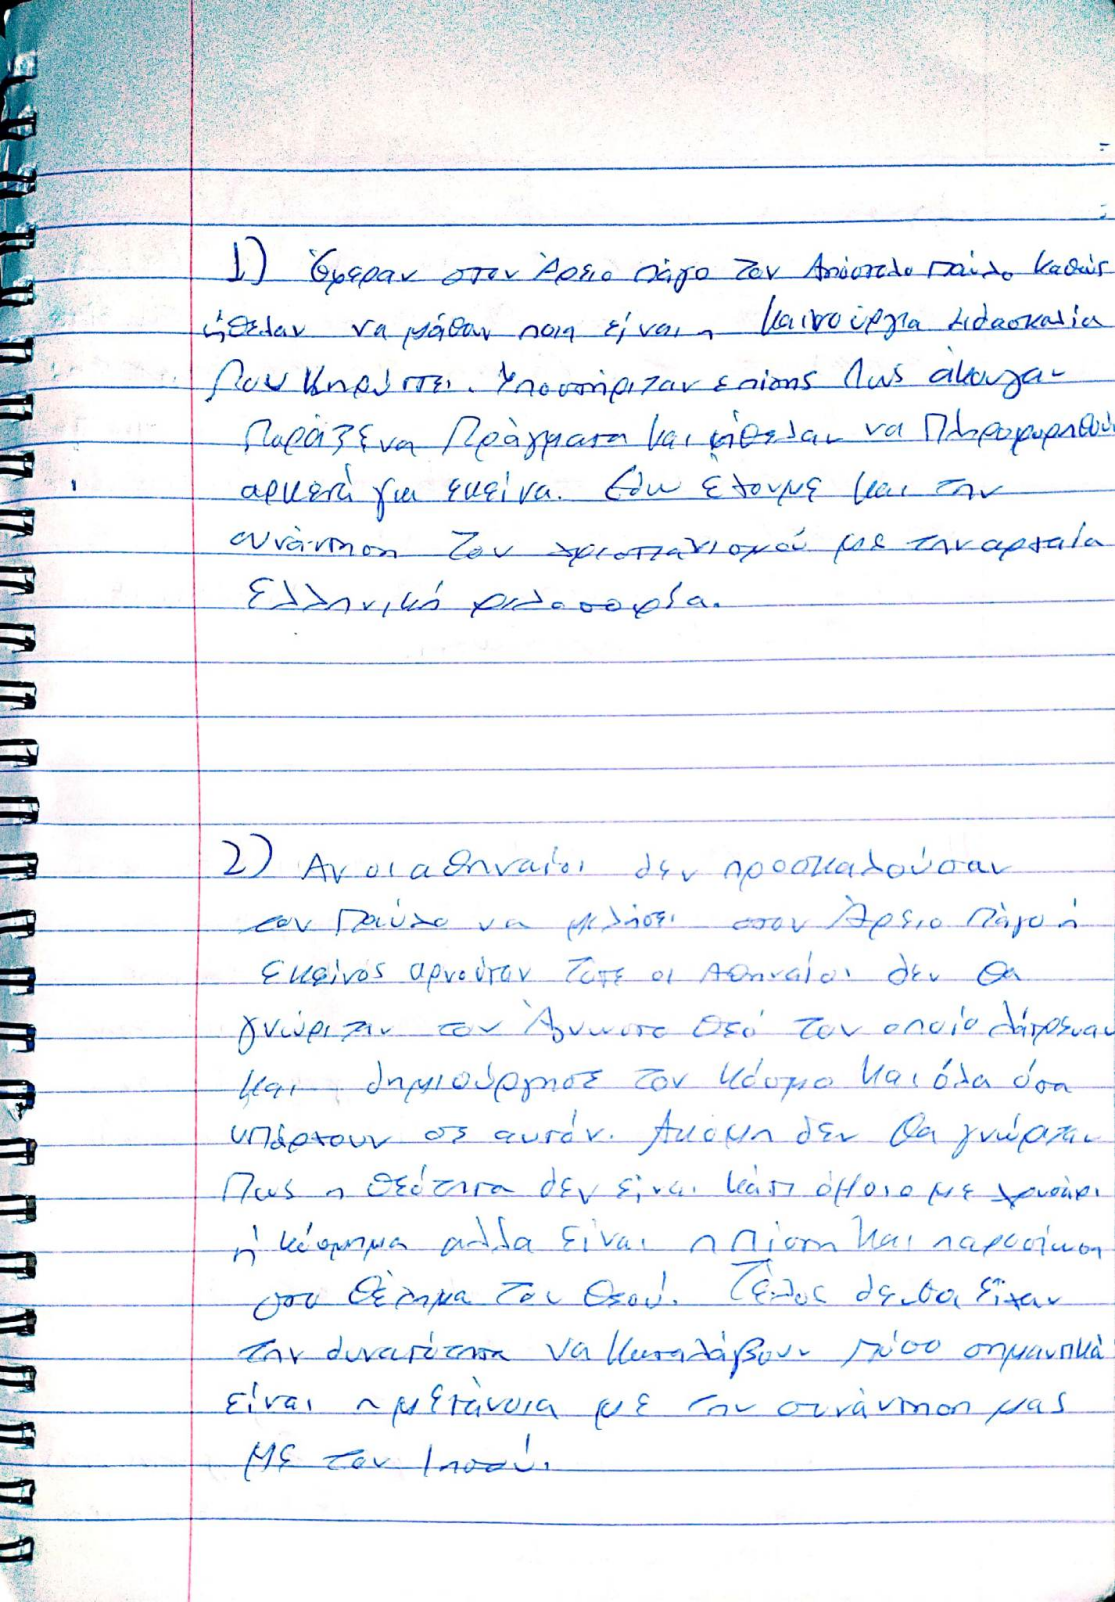 1) Έφεραν στον Άρειο πάγο τον Απόστολο Παύλο καθώς
ήθελαν να μάθαν ποιη είναι η καινούργια διδασκαλία
που κηρύττει. Υποστήριζαν επίσης πως άκουγαν
παράξενα πράγματα και ήθελαν να πληροφορηθούν
αρκετά για εκείνα. Εδω έχουμε και την
συνάντηση του χριστιανισμού με την αρχαία
ελληνική φιλοσοφία.
2) Αν οι αθηναίοι δεν προσκαλούσαν
τον Παύλο να μιλήσει στον Άρειο Πάγο ή
εκείνος αρνούταν τοτε οι Αθηναίοι δεν θα
γνώριζαν τον Άγνωστο Θεό τον οποίο λάτρευαν
και δημιούργησε τον κόσμο και όλα όσα
υπάρχουν σε αυτόν. Ακόμη δεν θα γνώριζαν
πως η θεότητα δεν είναι κάτι όμοιο με χρυσάφι
ή κόσμημα αλλα είναι η πίστη και
στο θέλημα του Θεού. Τέλος δεν θα είχαν
την δυνατότητα να καταλάβουν πόσο σημαντικά
είναι η μετάνοια με την συνάντηση μας
με τον Ιησού.